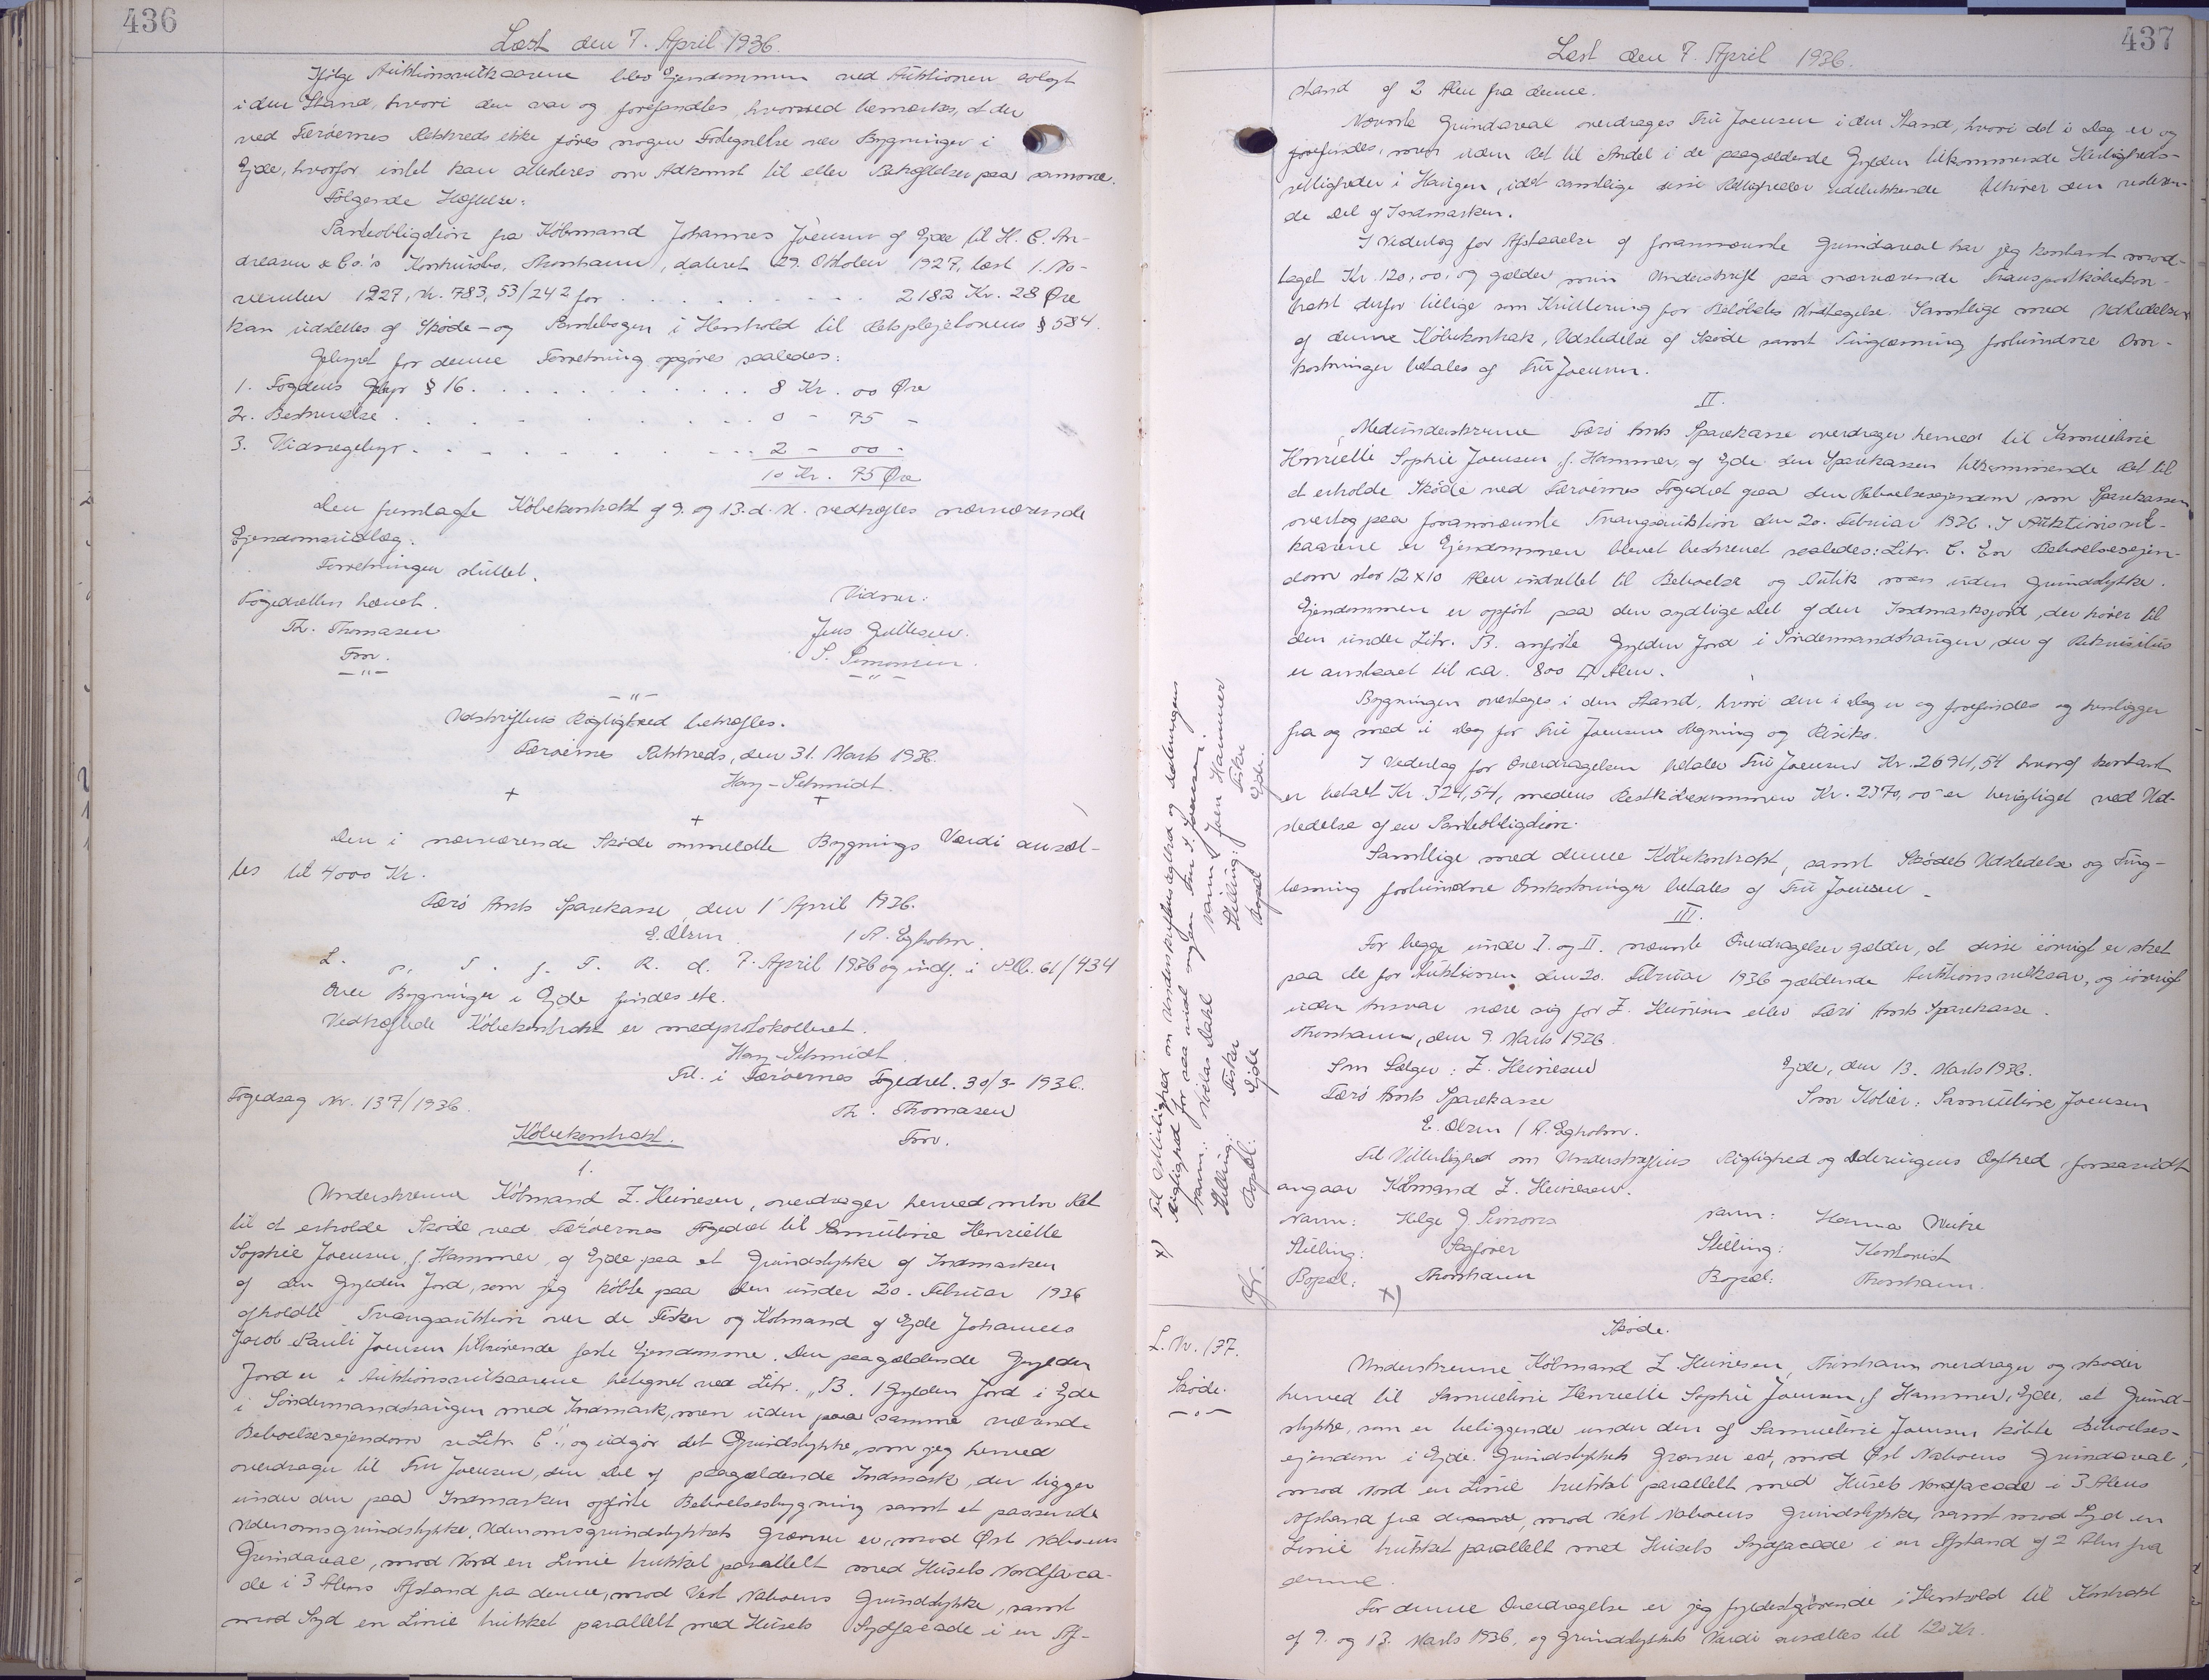 436
Læst den 7. April 1936.
Ifølge Auktionsvilkaarene blev Ejendommen ved Auktionen solgt
i den Stand, hvori den var og forefandtes, hvorved bemærkes, at der
ved Færøernes Retskreds ikke føres nogen Fortegnelse over Bygninger i
Ejde, hvorfor intet kan attesteres om Adkomst til eller Behæftelser paa samme.
Følgende Hæftelse:
Panteobligation fra Købmand Johannes Joensen af Ejde til H. C. An-
dreasen & Co.'s Konkursbo, Thorshavn, dateret 29. Oktober 1927, læst 1. No-
vember 1927, Nr. 783, 53/242 for . . . . . . . . . 2182 Kr. 28 Øre
kan udslettes af Skøde- og Pantebogen i Henhold til Retsplejelovens § 584.
Gebyret for denne Forretning opgøres saaledes:
1. Fogdens Gebyr § 16. . . . . . . . . . . . 8 Kr. 00 Øre
2. Beskrivelse . . . . . . . . . . . . 0 - 75 -
3. Vidnegebyr . . . . . . . . . . . . 2 - 00 -
10 Kr. 75 Øre
Den fremlagte Købekontrakt af 9. og 13. d. M. vedhæftes nærværende
Ejendomsudlæg.
Forretningen sluttet.
Fogedretten hævet.
Th. Thomasen
Fm.
-"-
Vidner:
Jens Guttesen.
S. Simonsen.
-"-
-"-
Udskriftens Rigtighed bekræftes.
Færøernes Retskreds, den 31. Marts 1936.
Hay-Schmidt.
+ + +
Den i nærværende Skøde ommeldte Bygnings Værdi ansæt-
tes til 4000 Kr.
Færø Amts Sparekasse, den 1' April 1936.
E. Olsen / A. Egholm.
L. p. T. f. F. R. d. 7. April 1936 og indf. i Pltb. 61/434
Over Bygninger i Ejde findes etc.
Vedhæftede Købekontrakt er medprotokolleret.
Hay-Schmidt.
Frl. i Færøernes Fogedret. 30/3- 1936.
Fogedsag Nr. 137/1936.
Th. Thomasen
Fm.
Købekontrakt.
1.
Underskrevne Købmand Z. Heinesen, overdrager herved min Ret
til at erholde Skøde ved Færøernes Fogedret til Samueline Henriette
Sophie Joensen, f. Hammer, af Ejde paa et Grundstykke af Indmarken
af den Gylden Jord, som jeg købte paa den under 20. Februar 1936
afholdte Tvangsauktion over de Fisker og Købmand af Ejde Johannes
Jacob Pauli Joensen tilhørende faste Ejendomme. Den paagældende Gylden
Jord er i Auktionsvilkaarene betegnet ved Litr. "B. 1 Gylden Jord i Ejde
i Søndermandshaugen med Indmark, men uden paa samme værende
Beboelsesejendom se Litr. C", og udgør det Grundstykke, som jeg herved
overdrager til Fru Joensen, den Del af paagældende Indmark, der ligger
under den paa Indmarken opførte Beboelsesbygning samt et passende
Udenomsgrundstykke. Udenomsgrundstykkets Grænser er, mod Øst Naboens
Grundareal, mod Nord en Linie trukket parallelt med Husets Nordfaca-
de i 3 Alens Afstand fra denne, mod Vest Naboens Grundstykke, samt
mod Syd en Linie trukket parallelt med Husets Sydfacade i en Af-
437
Læst den 7. April 1936.
stand af 2 Alen fra denne.
Nævnte Grundareal overdrages Fru Joensen i den Stand, hvori det i Dag er og
forefindes, men uden Ret til Andel i de paagældende Gylden tilkommende Herligheds-
rettigheder i Haugen, idet samtlige disse Rettigheder udelukkende tilhører den resteren-
de Del af Indmarken.
I Vederlag for Afstaaelse af forannævnte Grundareal har jeg kontant mod-
taget Kr. 120,00, og gælder min Underskrift paa nærværende Transportkøbekon-
trakt derfor tillige som Kvittering for Beløbets Modtagelse. Samtlige med Udstedelsen
af denne Købekontrakt, Udstedelse af Skøde samt Tinglæsning forbundne Om-
kostninger betales af Fru Joensen.
II.
Medunderskrevne Færø Amts Sparekasse overdrager herved til Samueline
Henriette Sophie Joensen, f. Hammer, af Ejde den Sparekassen tilkommende Ret til
at erholde Skøde ved Færøernes Fogedret paa den Beboelsesejendom, som Sparekassen
overtog paa forannævnte Tvangsauktion den 20. Februar 1936. I Auktionsvil-
kaarene er Ejendommen blevet beskrevet saaledes: Litr. C. En Beboelsesejen-
dom stor 12 x 10 Alen indrettet til Beboelse og Butik men uden Grundstykke.
Ejendommen er opført paa den sydlige Del af den Indmarksjord, der hører til
den under Litr. B. anførte Gylden Jord i Søndermandshaugen, der af Rekvisitus
er anslaaet til ca. 800 □ Alen.
Bygningen overtages i den Stand, hvori den i Dag er og forefindes og henligger
fra og med i Dag for Fru Joensens Regning og Risiko.
I Vederlag for Overdragelsen betaler Fru Joensen Kr. 2694,54 hvoraf kontant
er betalt Kr. 324,54, medens Restkøbesummen Kr. 2370,00 er berigtiget ved Ud-
stedelse af en Panteobligation.
Samtlige med denne Købekontrakt, samt Skødets Udstedelse og Ting-
læsning forbundne Omkostninger betales af Fru Joensen.
III.
For begge under I. og II. nævnte Overdragelser gælder, at disse iøvrigt er sket
paa de for Auktionen den 20. Februar 1936 gældende Auktionsvilkaar, og iøvrigt
uden Ansvar være sig for Z. Heinesen eller Færø Amts Sparekasse.
Thorshavn, den 9. Marts 1936.
Som Sælger: Z. Heinesen
Færø Amts Sparekasse
E. Olsen / A. Egholm.
Ejde, den 13. Marts 1936.
Som Køber: Samueline Joensen
Til Vitterlighed om Underskriftens Rigtighed og Dateringens Ægthed, forsaavidt
angaar Købmand Z. Heinesen.
Navn: Helge J. Simonsen
Stilling: Sagfører
Bopæl: Thorshavn
x)
Navn: Hanna
Stilling: Kontorist
Bopæl: Thorshavn.
x) Til Vitterlighed om Underskriftens Ægthed og Dateringens
Rigtighed for saa vidt angaar Fru S. Joensen.
Navn: Niclas Dahl Navn: Joen Hammer
Stilling: Fisker Stilling: Fisker
Bopæl: Ejde Bopæl Ejde.
Gr.
L. Nr. 137.
Skøde.
-o-
Skøde.
Underskrevne Købmand Z. Heinesen, Thorshavn overdrager og skøder
herved til Samueline Henriette Sophie Joensen, f. Hammer, Ejde, et Grund-
stykke, som er beliggende under den af Samueline Joensen købte Beboelses-
ejendom i Ejde. Grundstykkets Grænser er, mod Øst Naboens Grundareal,
mod Nord en Linie trukket parallelt med Husets Nordfacade i 3 Alens
Afstand fra denne, mod Vest Naboens Grundstykke, samt mod Syd en
Linie trukket parallelt med Husets Sydfacade i en Afstand af 2 Alen fra
denne.
For denne Overdragelse er jeg fyldestgjørende i Henhold til Kontrakt
af 9. og 13. Marts 1936, og Grundstykkets Værdi ansættes til 120 Kr.